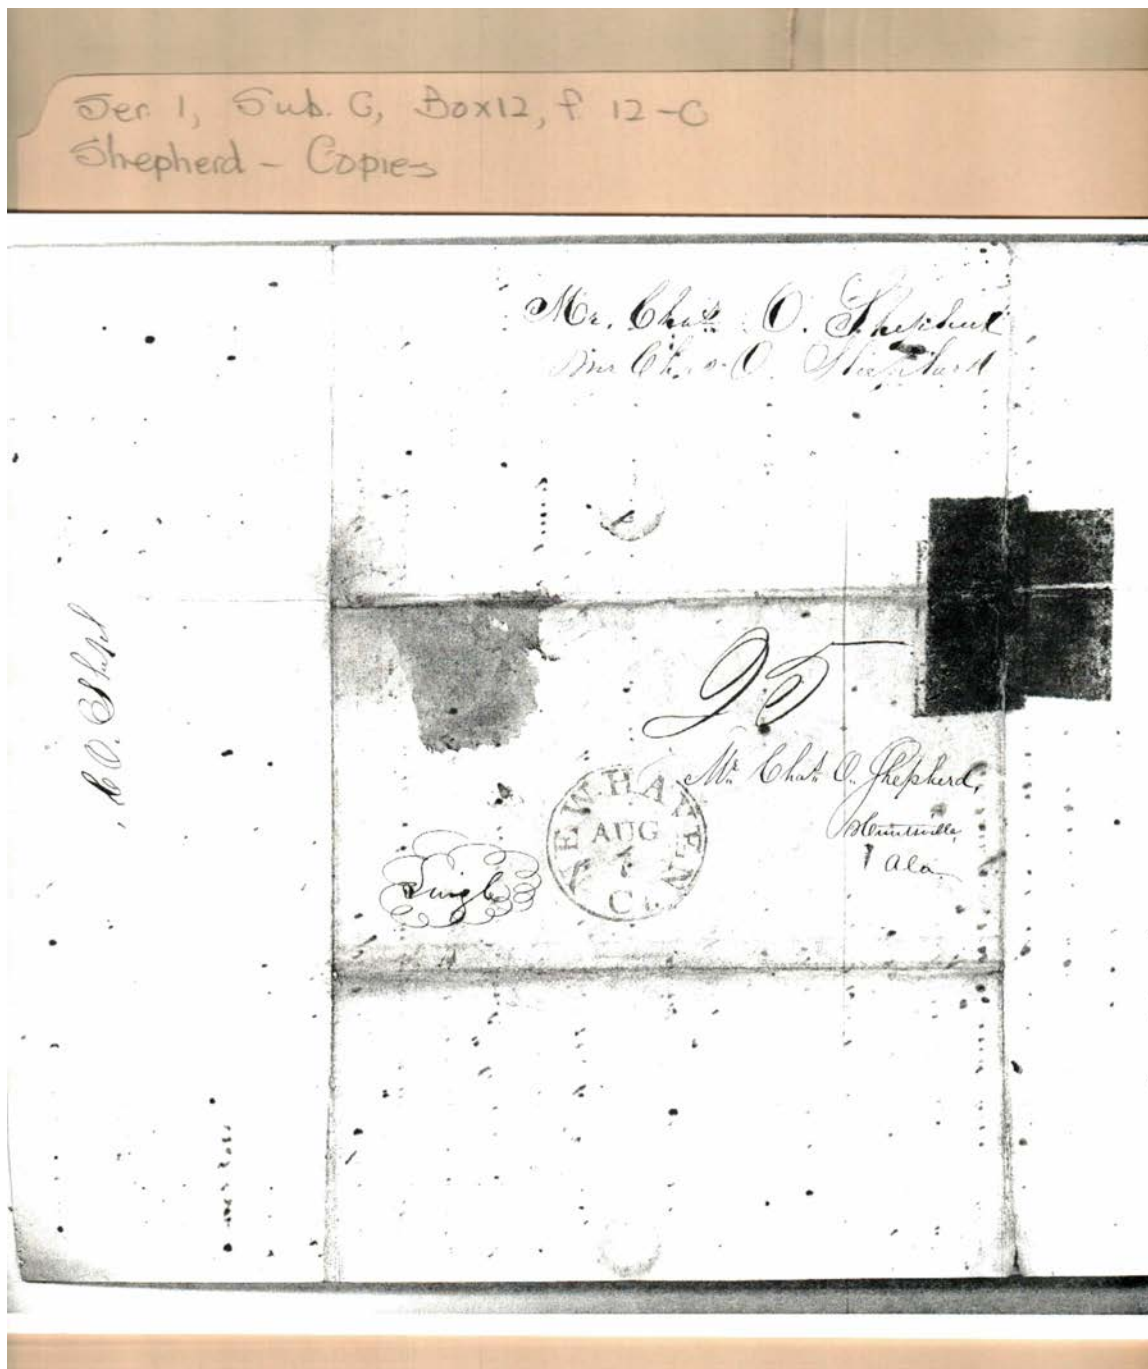 Ser 1, Sub. C, Box 12, f 12-C
Shepherd - Copies
Mr. Chas. O. Shepherd
Mr Chas O. Shepherd
C. O. Shepd
25
Mr. Chas. O. Shepherd,
Huntsville,
Ala
NEW HAVEN Ct.
AUG
Single